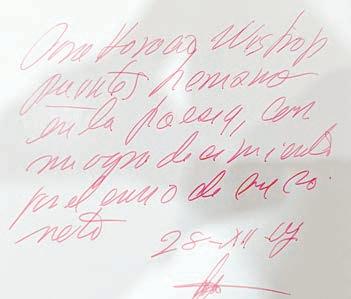 Para Horacio Wishop
puentes hermano
en la poesia, con
mi agradecimiento
por el envio de su so
neto
28-XII-